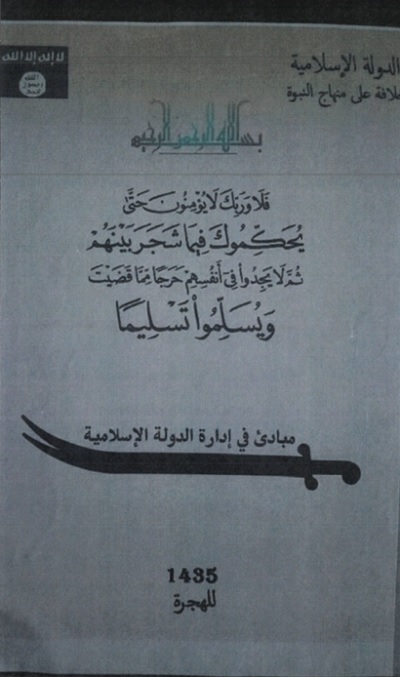 لا إله إلا الله
الله
رسول
محمد
الدولة الإسلامية
خلافة على منهاج النبوة
بسم الله الرحمن الرحيم
فَلَا وَرَبِّكَ لَا يُؤْمِنُونَ حَتَّىٰ
يُحَكِّمُوكَ فِيمَا شَجَرَ بَيْنَهُمْ
ثُمَّ لَا يَجِدُوا۟ فِىٓ أَنفُسِهِمْ حَرَجًا مِّمَّا قَضَيْتَ
وَيُسَلِّمُوا۟ تَسْلِيمًا
مبادئ في إدارة الدولة الإسلامية
1435
للهجرة